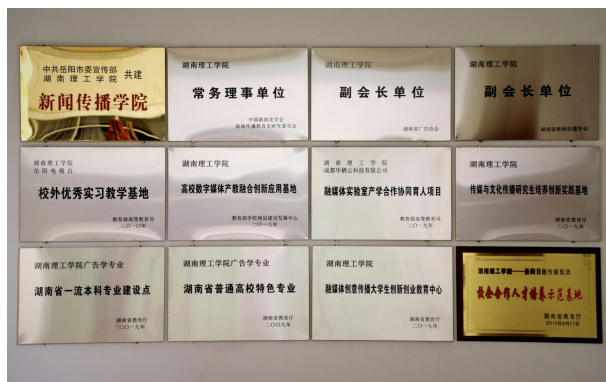 中共岳阳市委宣传部
湖南理工学院
共建
新闻传播学院
湖南理工学院
常务理事单位
中国新闻史学会
新闻传播教育史研究委员会
湖南理工学院
副会长单位
湖南省广告协会
湖南理工学院
副会长单位
湖南省新闻传播学会
湖南理工学院
岳阳电视台
校外优秀实习教学基地
教育部高等教育司
二〇一〇年
湖南理工学院
高校数字媒体产教融合创新应用基地
教育部学校规划建设发展中心
二〇一八年
湖南理工学院
成都华栖云科技有限公司
融媒体实验室产学合作协同育人项目
教育部高等教育司
二〇一九年
湖南理工学院
传媒与文化传播研究生培养创新实践基地
湖南省教育厅
二〇一九年
湖南理工学院广告学专业
湖南省一流本科专业建设点
湖南省教育厅
二〇一九年
湖南理工学院广告学专业
湖南省普通高校特色专业
湖南省教育厅
二〇〇九年
湖南理工学院
融媒体创意传播大学生创新创业教育中心
湖南省教育厅
二〇一九年
湖南理工学院——岳阳日报传媒集团
校企合作人才培养示范基地
湖南省教育厅